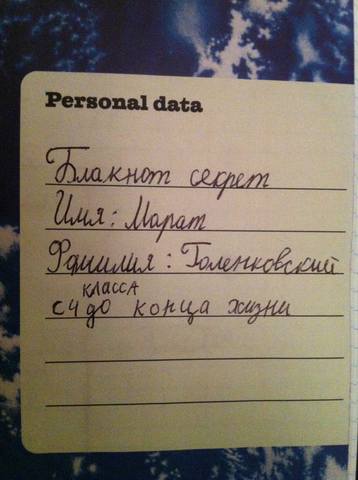 Personal data
Блакнот секрет
Имя: Марат
Фамилия: Голенковский
класса
с 4 до конца жизни